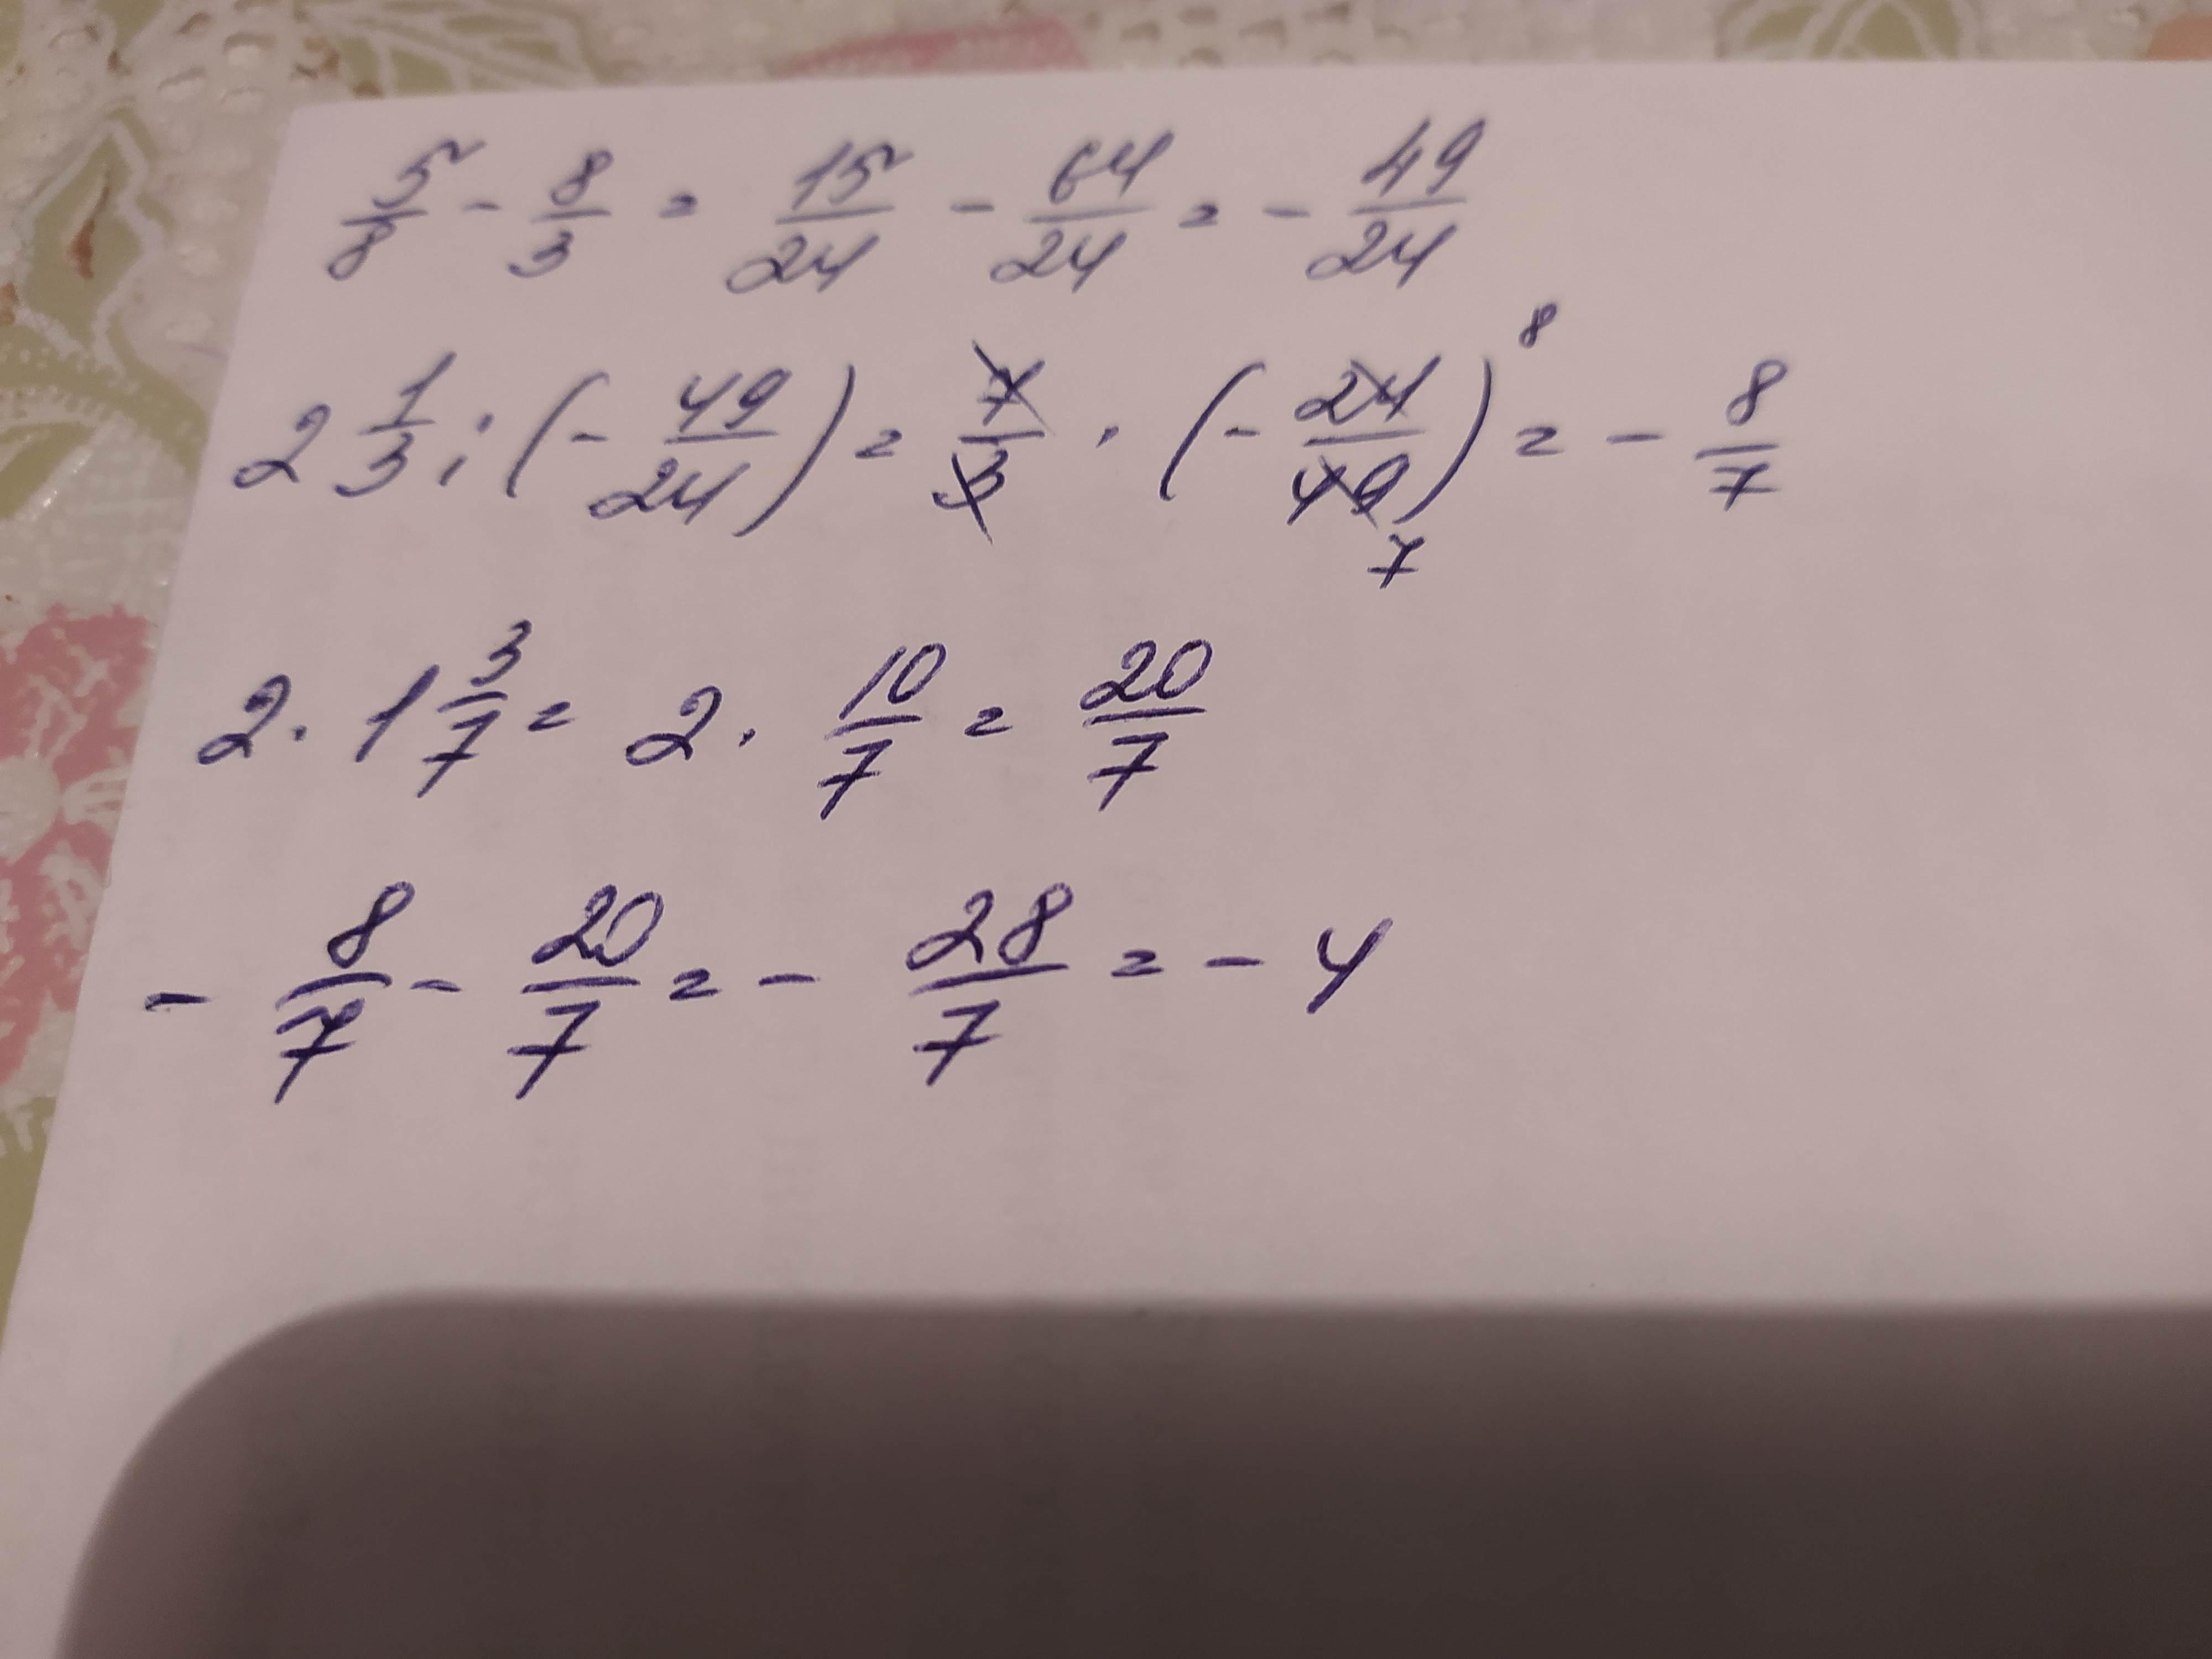 5/8 - 8/3 = 15/24 - 64/24 = - 49/24
2 1/3 : (- 49/24) = 7/3 · (- 24/49) 8 7 = - 8/7
2 · 1 3/7 = 2 · 10/7 = 20/7
- 8/7 - 20/7 = - 28/7 = - 4